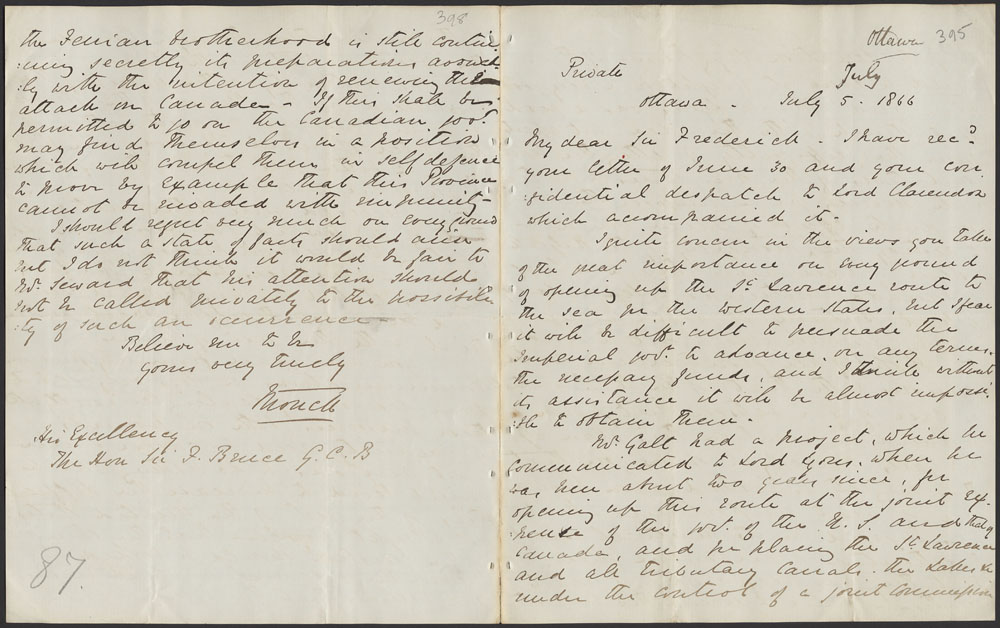 398
the Fenian Brotherhood is still contin
:uing secretly its preparations
:ly with the intention of renewing the
attack on Canada - If this shall be
permitted to go on the Canadian govt.
may find themselves in a position
which will compel them in self defence
to prove by example that this Province
cannot be invaded with impunity -
I should regret very much on every ground
that such a state of facts should arise
but I do not think it would be fair to
Mr. Seward that his attention should
not be called privately to the possibili
:ty of such an occurrence
Believe me to be
yours very truly
Monck
His Excellency
The Hon Sir F. Bruce G.C.B
87.
Ottawa 395
July
Private
Ottawa - July 5. 1866
My dear Sir Frederick - I have recd.
your letter of June 30 and your con
:fidential despatch to Lord Clarendon
which accompanied it -
I quite concur in the views you take
of the great importance on every ground
of opening up the St. Lawrence route to
the sea for the Western States, but I fear
it will be difficult to persuade the
Imperial govt. to advance, on any terms,
the necessary funds, and I think without
its assistance it will be almost impossi
:ble to obtain them -
Mr. Galt had a project, which he
communicated to Lord Lyons, when he
was here about two years since, for
opening up this route at the joint ex-
:pense of the govt. of the U. S. and that of
Canada, and for placing the St. Lawrence
and all tributary canals, the Lakes &c
under the control of a joint Commission